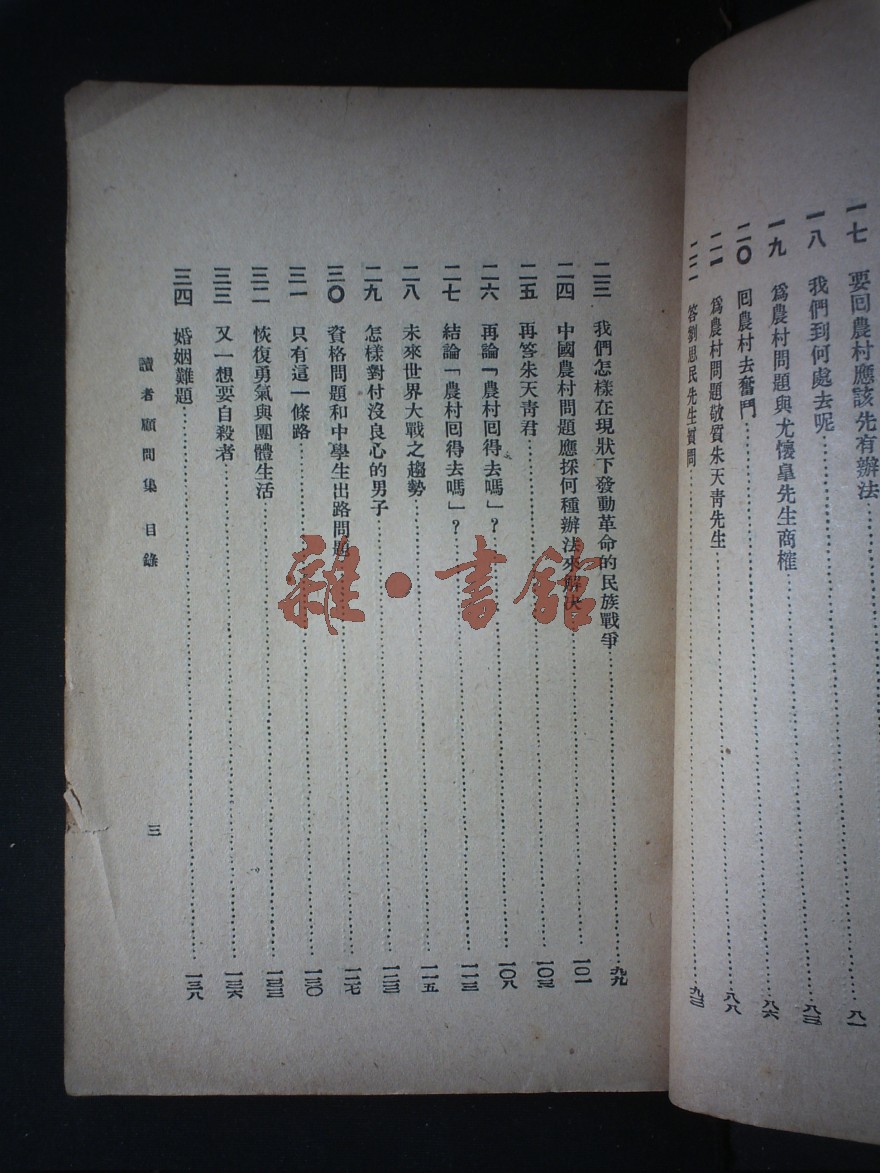 一七　要囘農村應該先有辦法……八一
一八　我們到何處去呢……八三
一九　爲農村問題與尤懷臯先生商榷……八六
二〇　囘農村去奮鬥……
二一　爲農村問題敬質朱天靑先生……八八
二二　答劉思民先生質問……九三
二三　我們怎樣在現狀下發動革命的民族戰爭……九九
二四　中國農村問題應採何種辦法來解決……一〇一
二五　再答朱天靑君……一〇三
二六　再論「農村囘得去嗎」？……一〇八
二七　結論「農村囘得去嗎」？……一一三
二八　未來世界大戰之趨勢……一一五
二九　怎樣對付沒良心的男子……一二三
三〇　資格問題和中學生出路問題……一二七
三一　只有這一條路……一三〇
三二　恢復勇氣與團體生活……一三三
三三　又一想要自殺者……一三六
三四　婚姻難題……一三八
讀者顧問集　目錄
三
雜·書館